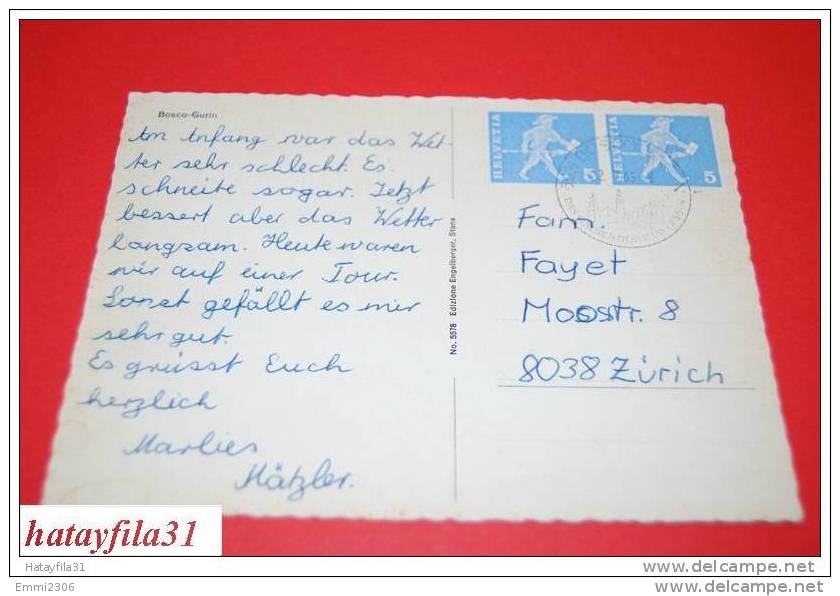 Bosco-Gurin
Am Anfang war das Wet-
ter sehr schlecht. Es
schneite sogar. Jetzt
bessert aber das Wetter
langsam. Heute waren
wir auf einer Tour.
Sonst gefällt es mir
sehr gut.
Es grüsst Euch
herzlich
Marlies
Mätzler.
No. 5578 Edizione Engelberger, Stans
HELVETIA 5
HELVETIA 5
Fam.
Fayet
Moosstr. 8
8038 Zürich
hatayfila31
Hatayfila31
www.delcampe.net
Emmi2306
www.delcampe.net